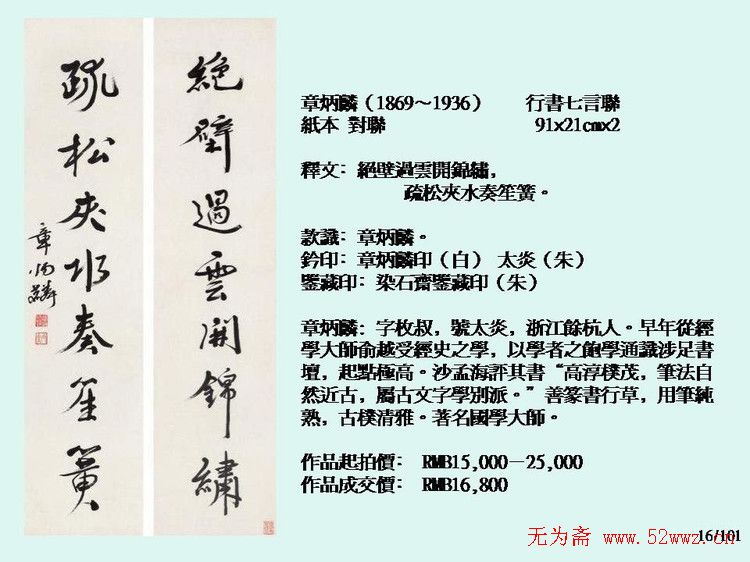 絕壁過雲開錦繡
疏松夾水奏笙簧
章炳麟
章炳麟（1869～1936） 行書七言聯
紙本 對聯 91x21cmx2
釋文：絕壁過雲開錦繡，
疏松夾水奏笙簧。
款識：章炳麟。
鈐印：章炳麟印（白） 太炎（朱）
鑒藏印：染石齋鑒藏印（朱）
章炳麟：字枚叔，號太炎，浙江餘杭人。早年從經
學大師俞越受經史之學，以學者之飽學通識涉足書
壇，起點極高。沙孟海評其書“高淳樸茂，筆法自
然近古，屬古文字學別派。”善篆書行草，用筆純
熟，古樸清雅。著名國學大師。
作品起拍價： RMB15,000－25,000
作品成交價： RMB16,800
16/101
无为斋 www.52wwz.cn